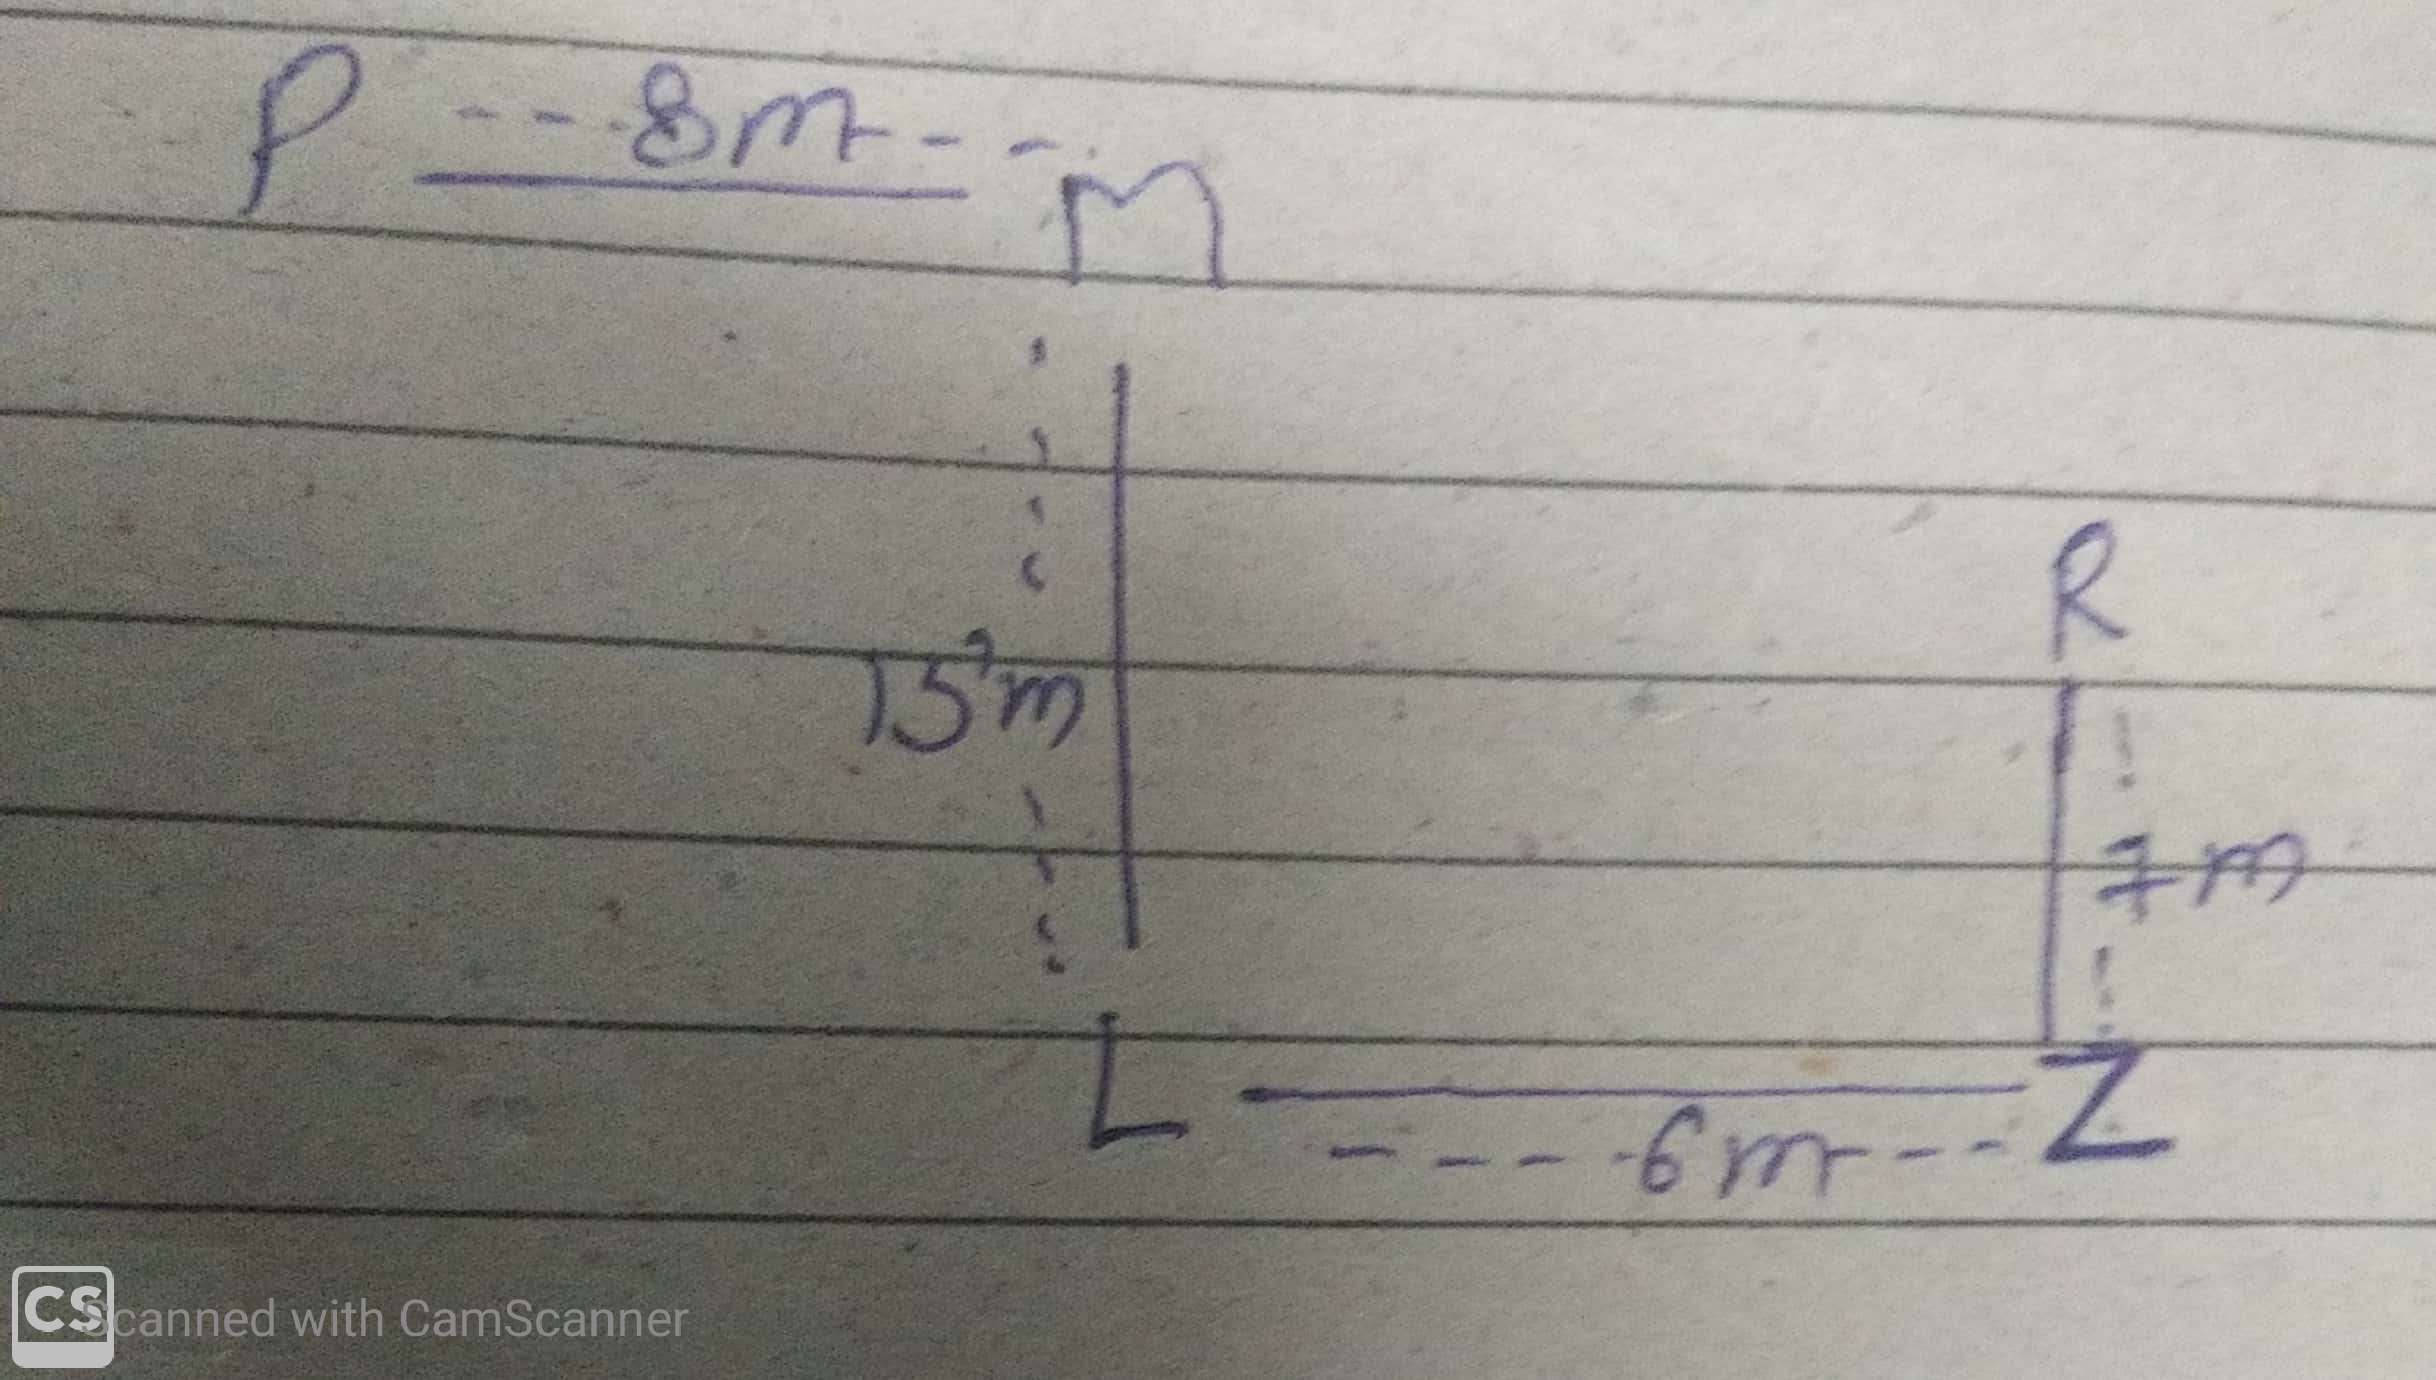 P ---8m--- M
R
15m
7m
L Z
----6m---
CS Scanned with CamScanner